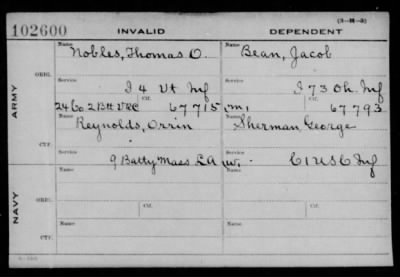 (3-M-3)
102600 INVALID DEPENDENT
Name Nobles, Thomas O. Name Bean, Jacob
ORIG.
Service I 4 Vt Inf Service I 73 Oh. Inf
ARMY
Ctf. Ctf.
24 Co 2 Batt VRC 67715 67793
Name Reynolds, Orrin Name Sherman, George
CTF.
Service 9 Batty Mass L A Service C 1 U S C Inf
Name Name
ORIG.
Service Service
NAVY
Ctf. Ctf.
Name Name
CTF.
Service Service